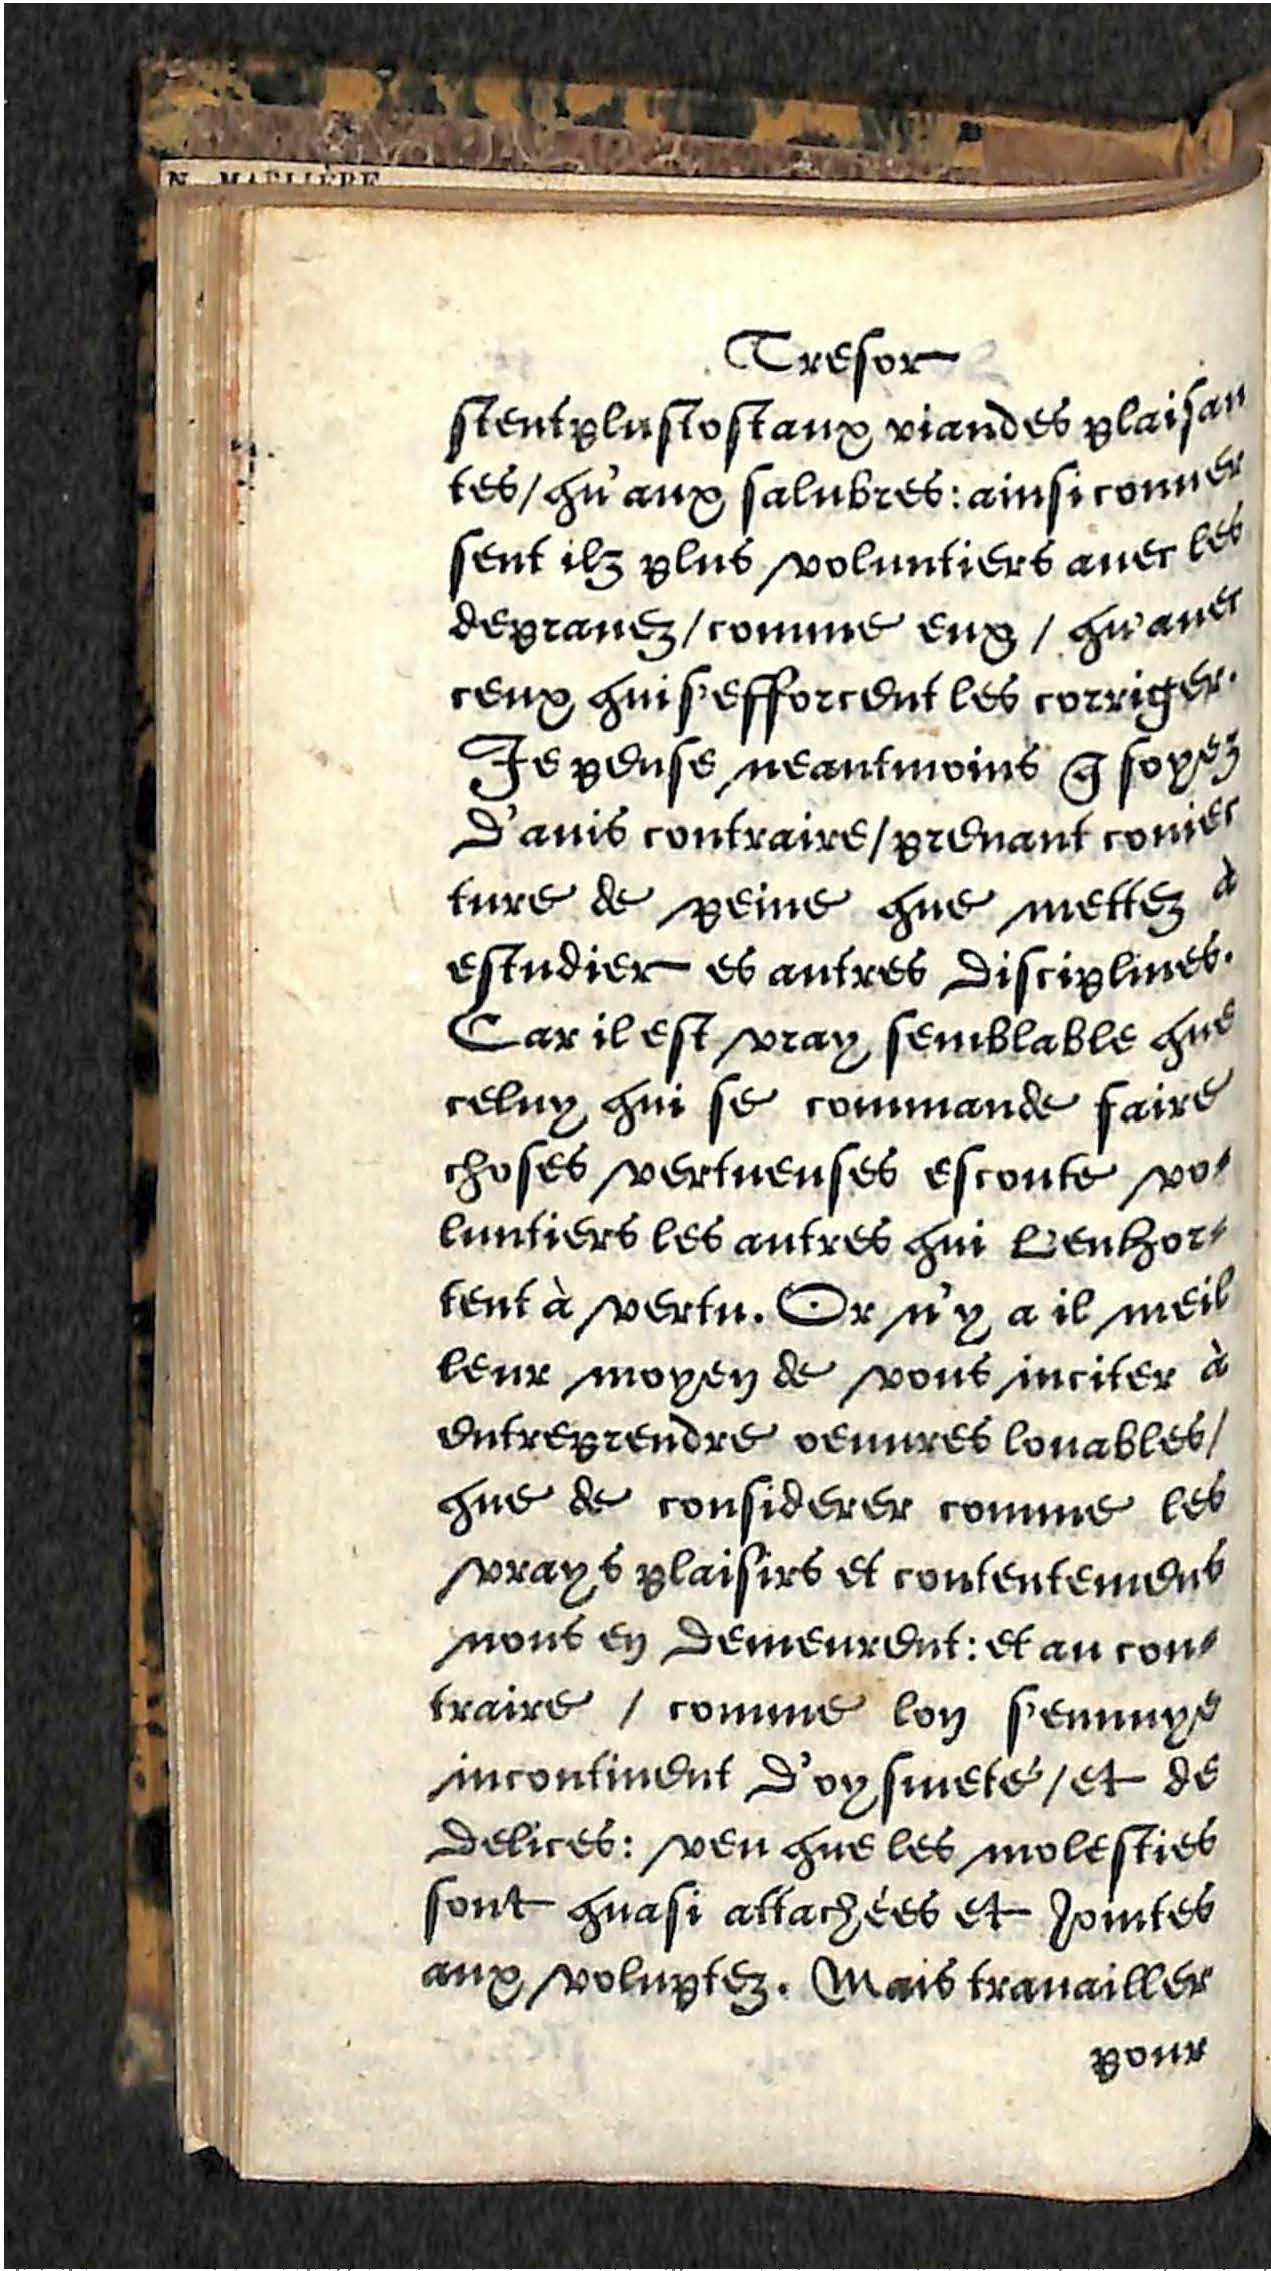 N. MAELIÈRE
Tresor
stent plustost aux viandes plaisan
tes/qu'aux salubres: ainsi conuer
sent ilz plus voluntiers auec les
deprauez/comme eux/qu'auec
ceux qui s'efforcent les corriger.
Je pense neantmoins q̃ soyez
d'auis contraire/prenant coniec
ture de peine que mettez à
estudier es autres disciplines.
Car il est vray semblable que
celuy qui se commande faire
choses vertueuses escoute vo-
luntiers les autres qui l'enhor-
tent à vertu. Or n'y a il meil
leur moyen de vous inciter à
entreprendre oeuures louables/
que de considerer comme les
vrays plaisirs et contentemens
nous en demeurent: et au con-
traire / comme lon s'ennuye
incontinent d'oysiueté/et de
delices: veu que les molesties
sont quasi attachées et Jointes
aux voluptez. Mais trauailler
pour